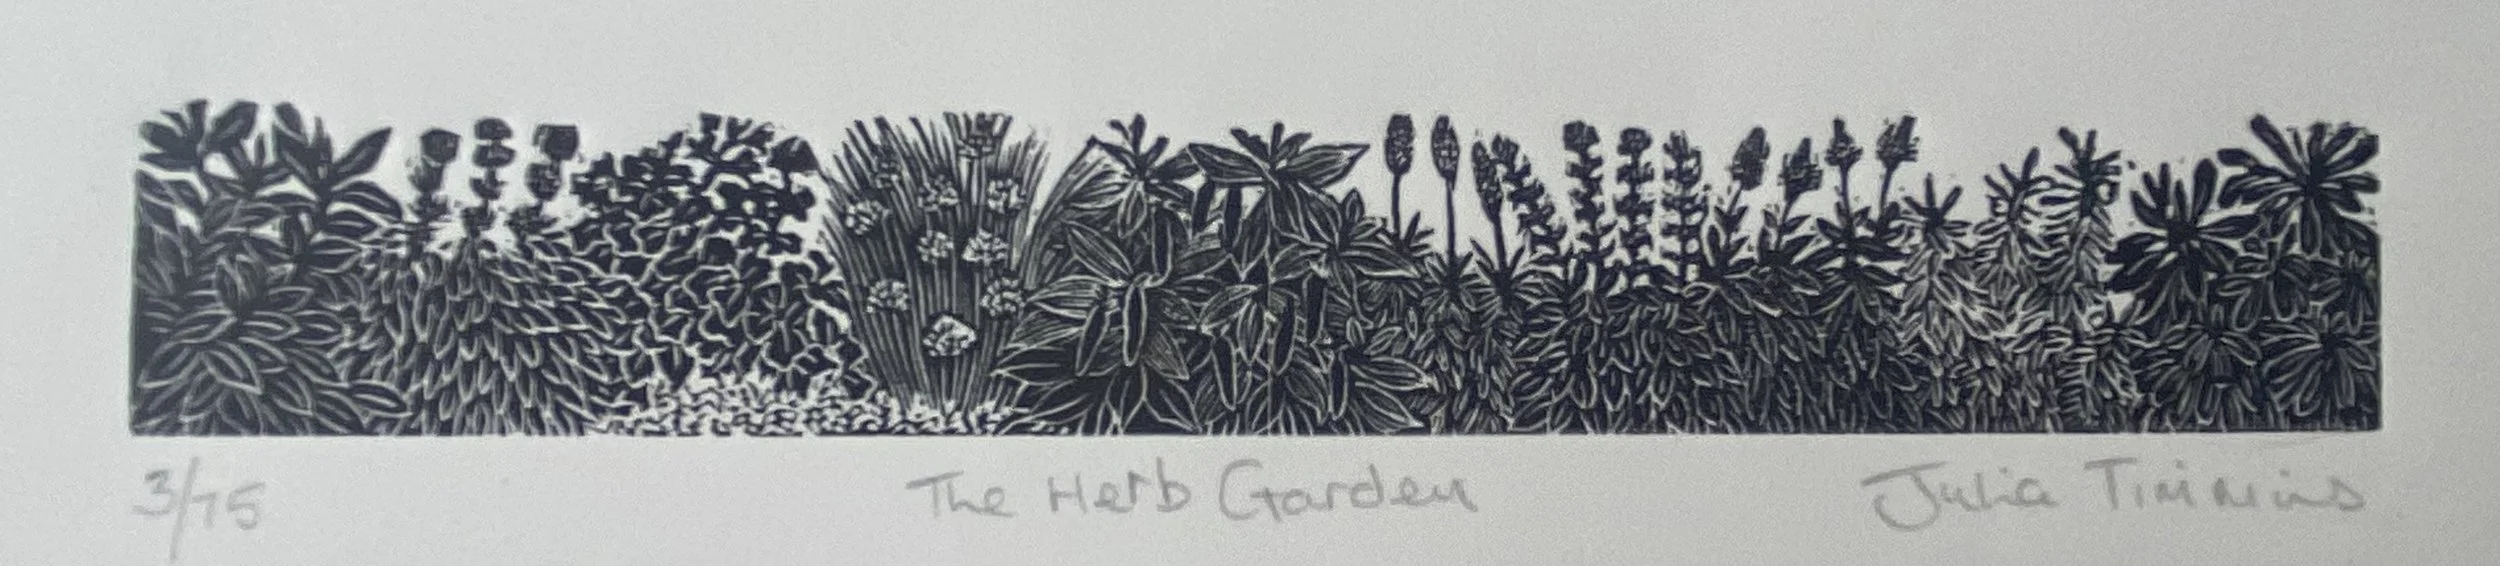 3/75 The Herb Garden Julia Timmins